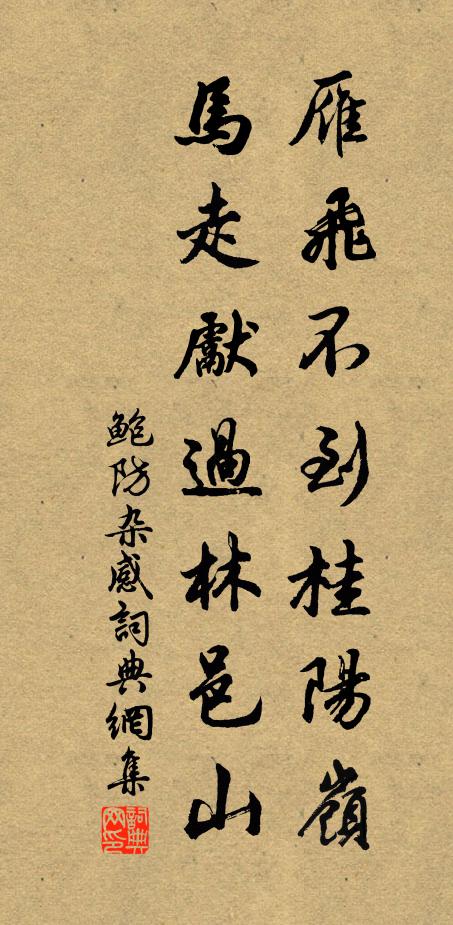 雁飛不到桂陽嶺
馬走獻過林邑山
鮑防杂感詞典網集
詞典网印